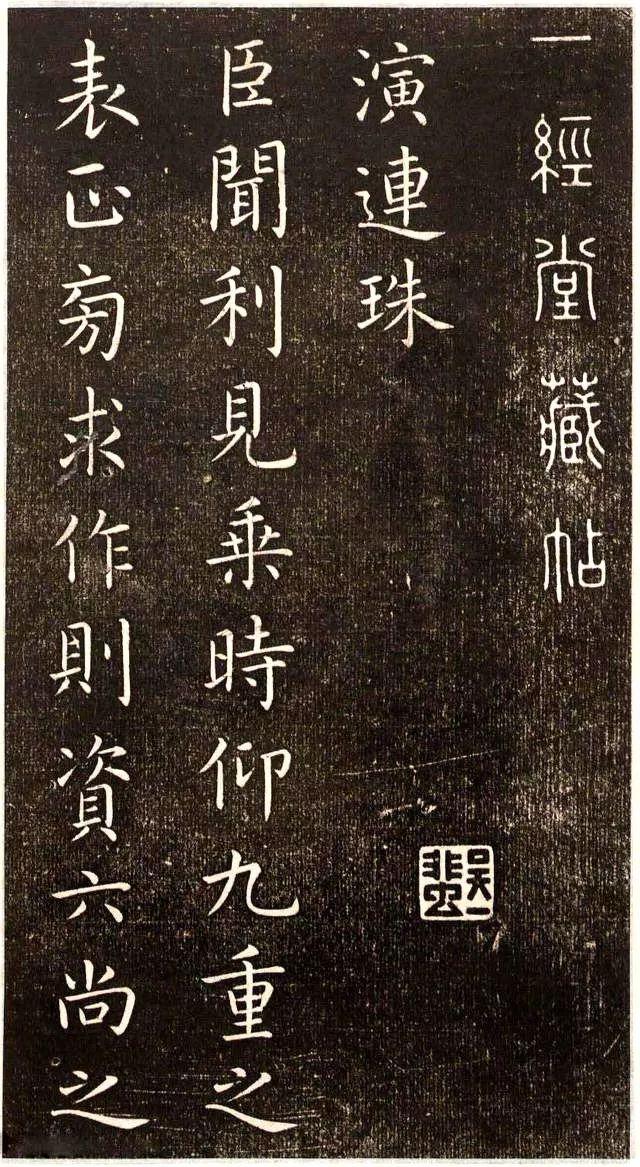 一經堂藏帖
演連珠
臣聞利見乗時仰九重之
表正匄求作則資六尚之
吳一蜚